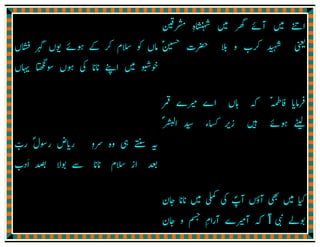 اتنے میں آئے گھر میں شہنشاہِ مشرقین
یعنی شہیدِ کرب و بلا حضرت حسینؑ
ماں کو سلام کر کے ہوئے یوں گہر فشاں
خوشبو میں اپنے نانا کی ہوں سونگھتا یہاں
فرمایا فاطمہؑ کہ ہاں اے میرے قمر
لیٹے ہوئے ہیں زیر کساء سید البشرؐ
یہ سنتے ہی وہ سرو ریاضِ رسولؐ رب
بعد از سلام نانا سے بولا بصد ادب
کیا میں بھی آؤں آپؐ کی کملی میں نانا جان
بولے نبیؐ کہ آ میرے آرامِ جسم و جان